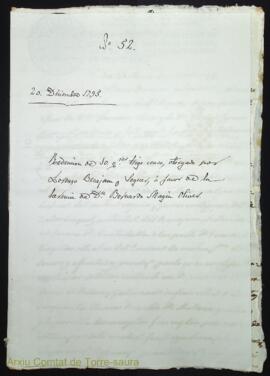 Nº 52.
20. Diciembre 1793.
Redencion de 30 qras trigo censo, otorgada por
Lorenzo Benejam y Seguí, á favor de la
de Dn Bernardo Magin Olives.
Arxiu Comtat de Torre-saura